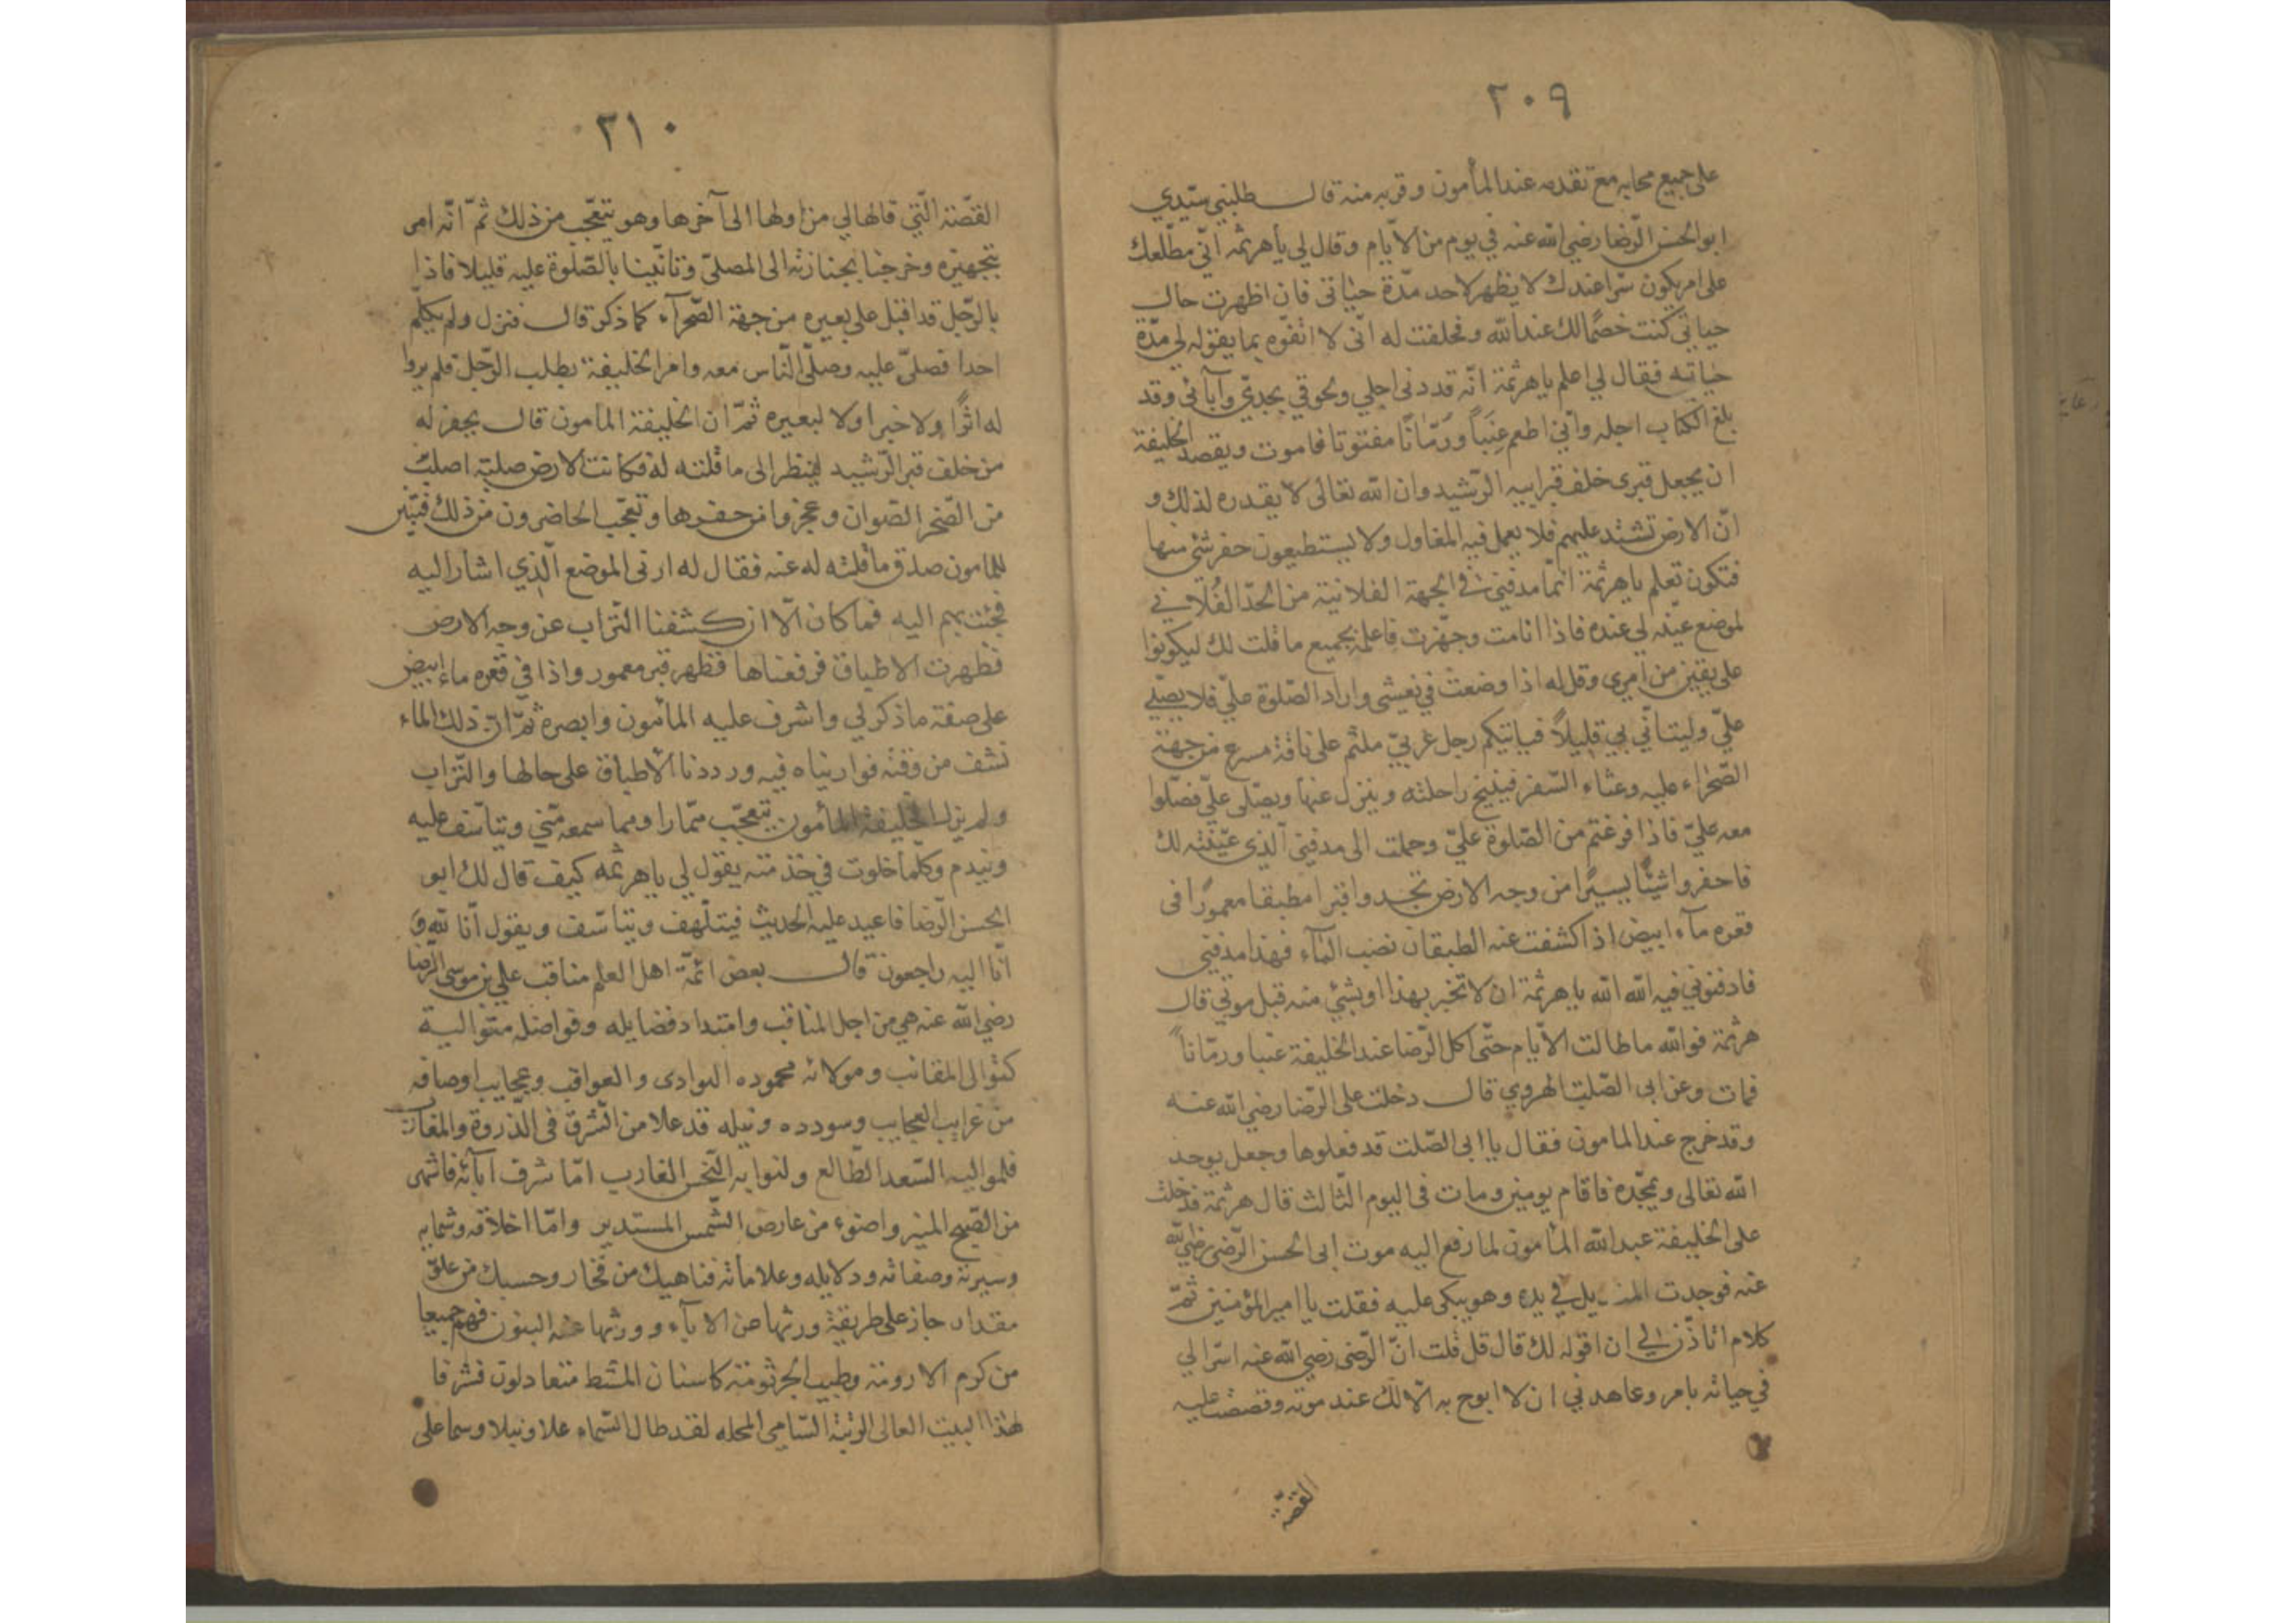 ٢٠٩
على جميع محابه مع تقدمه عند المأمون وقربه منه قال طلبني سيّدي
ابو الحسن الرّضا رضي الله عنه في يوم من الأيّام وقال لي يا هرثمه انّي مطّلعك
على امر يكون سرّا عندك لا يظهر لاحد مدّة حياتى فان اظهرت حال
حياتي كنت خصمًا لك عند الله وفحلفت له انّى لا اتفوّه بما يقوله لي مدّة
حياته فقال لي اعلم يا هرثمة انّه قد دنى اجلي ولحوقي بجدّي وآبائى وقد
بلغ الكتاب اجله وانّي اطعم عِنَباً ورُمّانًا مفتوتا فاموت ويقصد الخليفة
ان يجعل قبرى خلف قبر ابيه الرّشيد وان الله تعالى لا يقدره لذلك و
انّ الارض تشتد عليهم فلا يعمل فيه المعاول ولا يستطيعون حفر شئ منها
فتكون تعلم يا هرثمة انّما مدفنى في الجهة الفلانية من الحدّ الفُلاني
لموضع عيّنه لي عنده فاذا انامت وجهّزت فاعلمه بجميع ما قلت لك ليكونوا
على يقين من امري وقل له اذا وضعت في نعشى واراد الصّلوة عليّ فلا يصلّي
عليّ وليتأنّي بي قليلاً فياتيكم رجل عربيّ ملثم على ناقة مسرع من جهة
الصّحراء عليه وعثاء السّفر فينيخ راحلته وينزل عنها ويصلّى عليّ فصلّوا
معه عليّ فاذا فرغتم من الصّلوة عليّ وحملت الى مدفنى الّذى عيّنته لك
فاحفروا شيئًا يسيرًا من وجه الارض تجدوا قبرا مطبقا معمورًا فى
قعره مآء ابيض اذا كشفت عنه الطبقان نضب المآء فهذا مدفنى
فادفنوني فيه الله الله يا هرثمة ان لا تخبر بهذا او بشئ منه قبل موتي قال
هرثمة فوالله ما طالت الأيّام حتّى اكل الرّضا عند الخليفة عنبا ورمّاناً
فمات وعن ابى الصّلت الهروي قال دخلت على الرّضا رضي الله عنه
وقد خرج عند المامون فقال يا ابى الصّلت قد فعلوها وجعل يوحد
الله تعالى ويمجّده فاقام يومين ومات فى اليوم الثّالث قال هرثمة فدخلت
على الخليفة عبد الله المأمون لما رفع اليه موت ابى الحسن الرّضى رضي الله
عنه فوجدت المنديل في يده وهو يبكى عليه فقلت يا امير المؤمنين ثمّ
كلام اتأذّن لي ان اقوله لك قال قل قلت انّ الرّضى رضي الله عنه اسرّ الي
في حياته بامر وعاهدني ان لا ابوح به الّا لك عند موته وقصصت عليه
القصّة
٢١٠
القصّة الّتي قالها لي من اولها الى آخرها وهو يتعجّب من ذلك ثمّ انّه امر
بتجهيزه وخرجنا بجنازته الى المصلىّ وتانّينا بالصّلوة عليه قليلا فاذا
بالرّجل قد اقبل على بعيره من جهة الصّحرآء كما ذكر قال فنزل ولم يكلّم
احدا فصلىّ عليه وصلّى النّاس معه وامر الخليفة بطلب الرّجل فلم يروا
له اثرًا ولا خبرا ولا لبعيره ثمّ ان الخليفة المامون قال يحفر له
من خلف قبر الرّشيد لينظر الى ما قلته له فكانت الارض صلبة اصلب
من الصّخر الصّوان وعجزوا من حفرها وتعجّب الحاضرون من ذلك فتبيّن
للمامون صدق ما قلته له عنه فقال له ارنى الموضع الّذي اشار اليه
فجئت بهم اليه فما كان الّا ان كشفنا التّراب عن وجه الارض
فظهرت الاطباق فرفعناها فظهر قبر معمور واذا في قعره ماء ابيض
على صفة ما ذكر لي واشرف عليه المأمون وابصره ثمّ انّ ذلك الماء
نشف من وقته فواريناه فيه ورددنا الأطباق على حالها والتّراب
ولم يزل الخليفة المأمون يتعجّب ممّا را ومما سمعه منّي ويتأسّف عليه
ويندم وكلّما خلوت في خدمته يقول لي يا هرثمه كيف قال لك ابو
الحسن الرّضا فاعيد عليه الحديث فيتلّهف ويتأسّف ويقول انّا لله و
انّا اليه راجعون قال بعض ائمّة اهل العلم مناقب علي بن موسى الرّضا
رضي الله عنه هي من اجل المناقب وامتداد فضايله وفواضله متوالية
كتوالى المقانب ومولاته محموده البوادى والعواقب وعجايب اوصافه
من غرايب العجايب وسودده ونبله قد علا من الشّرف فى الذّروة والمغارب
فلمواليه السّعد الطّالع ولنوابه النّحس الغارب امّا شرف آبائه فاشهى
من الصّبح المنير واضوء من عارض الشّمس المستدير وامّا اخلاقه وشمايله
وسيرته وصفاته ودلايله وعلاماته فناهيك من فخار وحسبك من علوّ
مقدار جاز على طريقة ورثها عن الآباء وورثها عنه البنون فهم جميعا
من كرم الارومة وطيب الجرثومة كاسنان المشط متعادلون فشرفا
لهذا البيت العالى الرتبة السّامى المحله لقد طال السّماء علا ونبلا وسما على